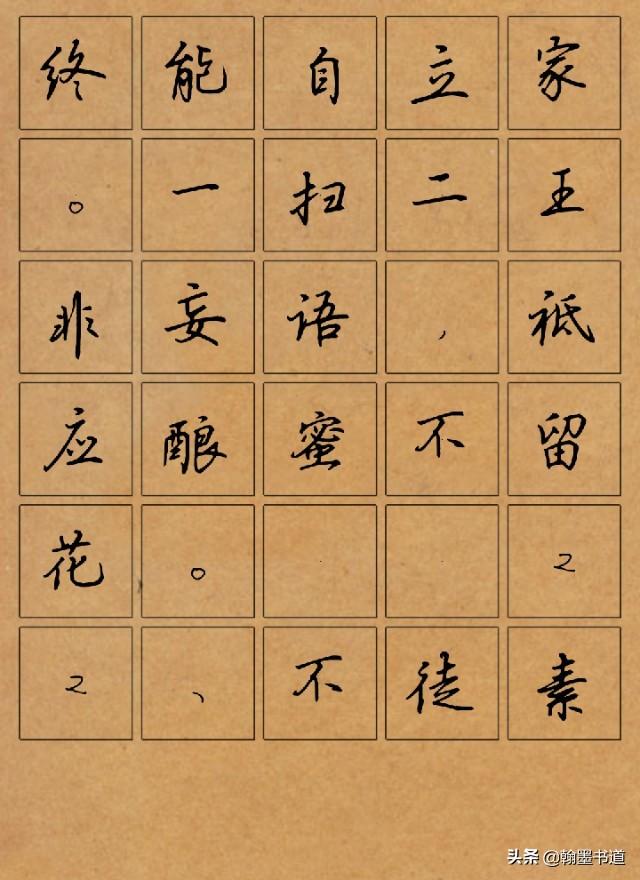 终能自立家
。一扫二王
非妄语，祗
应酿蜜不留
花。 2
2、不徒素
头条 @翰墨书道